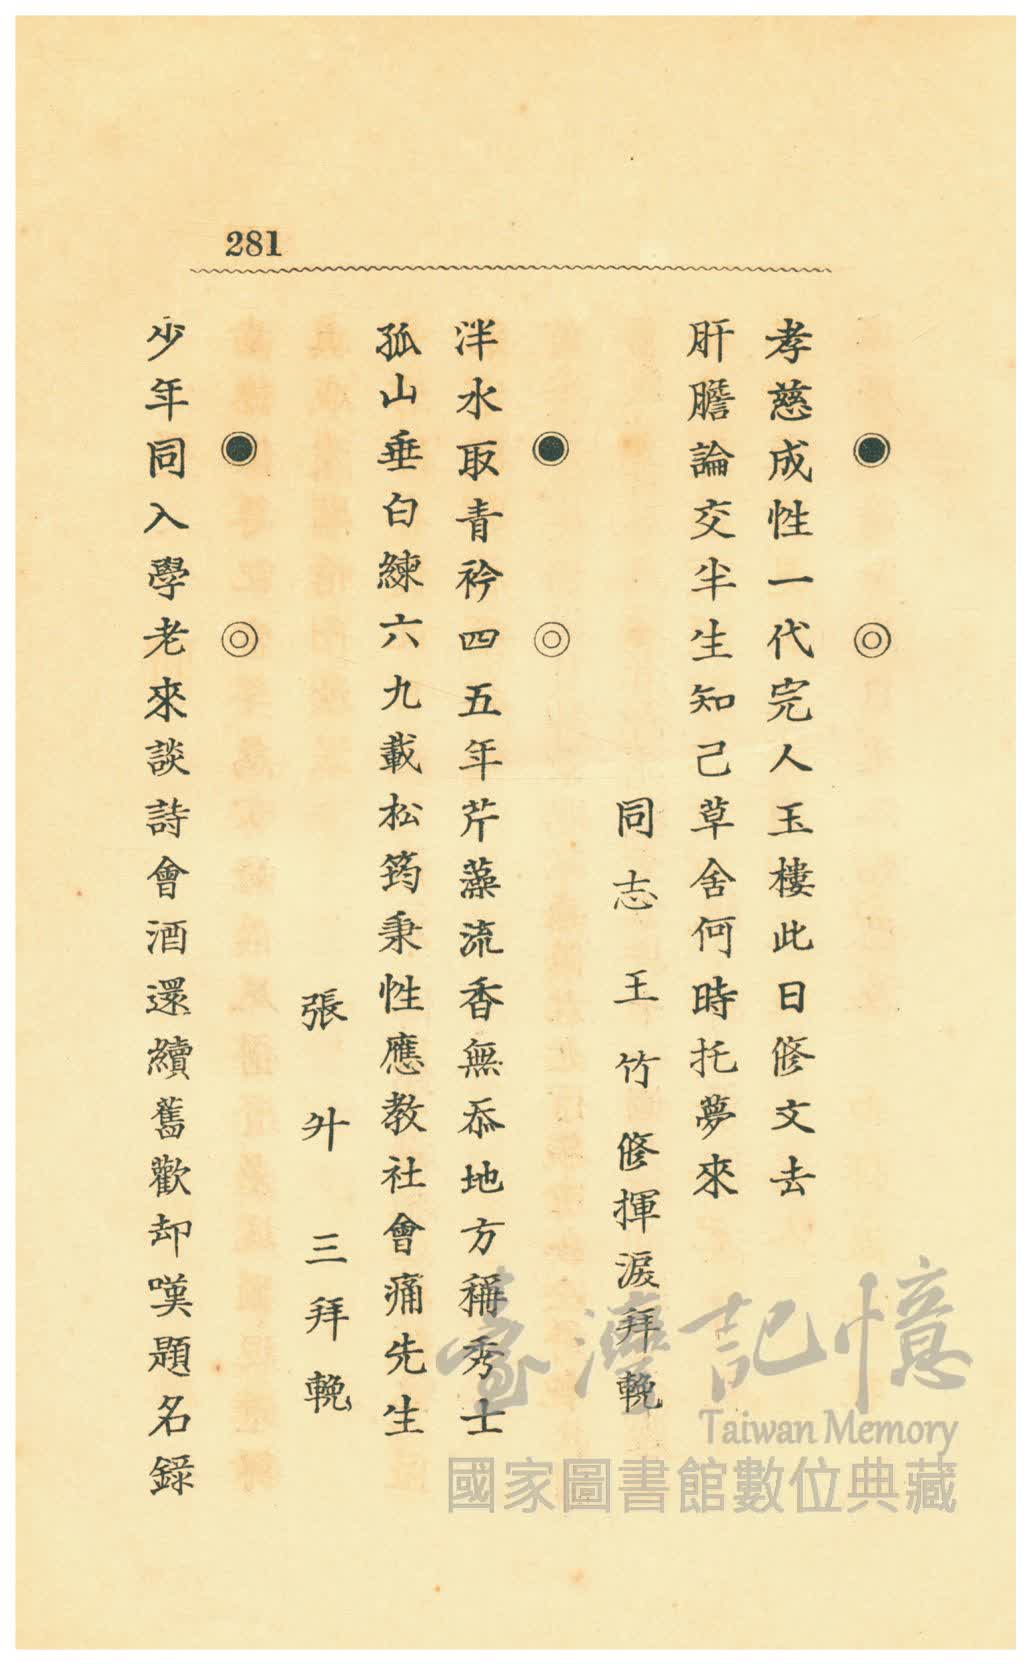 281
孝慈成性一代完人玉樓此日修文去
肝膽論交半生知己草舍何時托夢來
同志 王竹修揮淚拜輓
泮水取青衿四五年芹藻流香無忝地方稱秀士
孤山垂白練六九載松筠秉性應教社會痛先生
張升三拜輓
少年同入學老來談詩會酒還續舊歡却嘆題名錄
臺灣記憶
Taiwan Memory
國家圖書館數位典藏